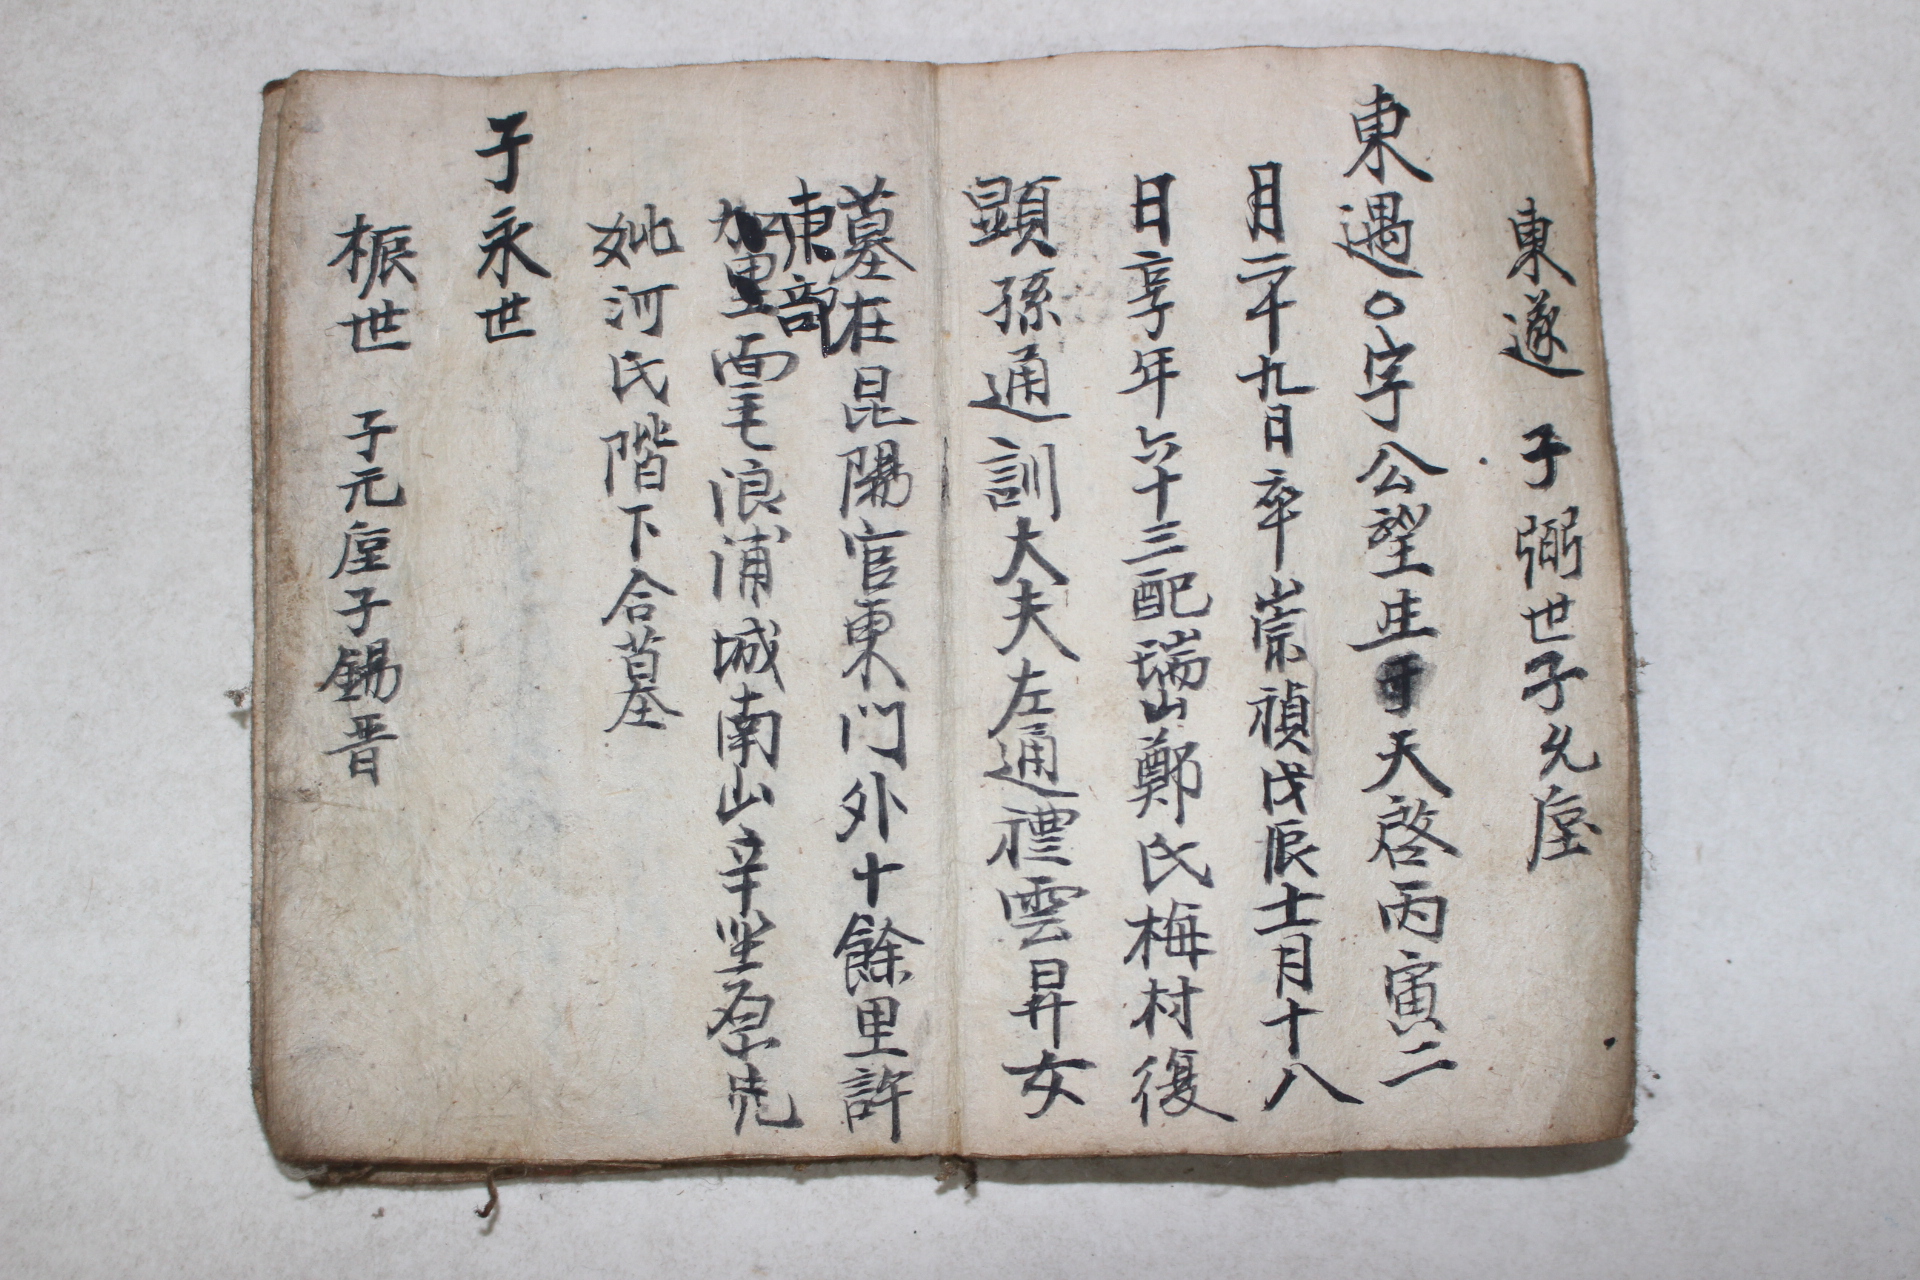 東遂 子弼世子允垕
東遇○字公望生于天啓丙寅二
月二十九日卒崇禎戊辰十一月十八
日享年六十三配瑞山鄭氏梅村復
顯孫通訓大夫左通禮雲昇女
墓在昆陽官東門外十餘里許
東部
面毛浪浦城南山辛坐原先
妣河氏階下合墓
子永世
桭世 子元垕子錫晋